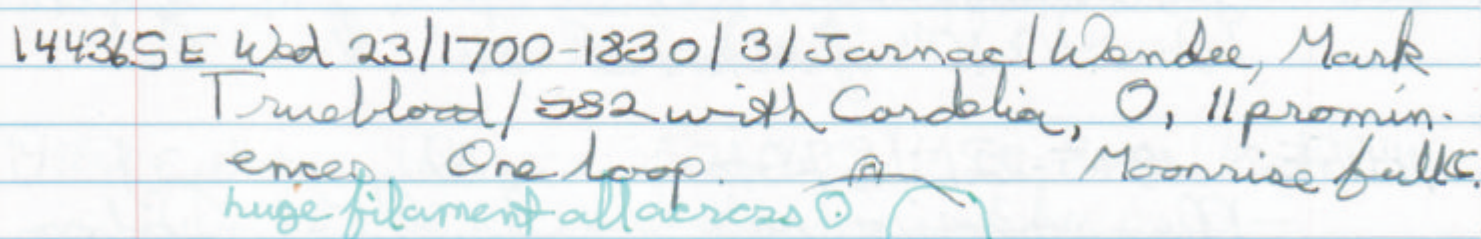 14436SE Wed 23/1700-1830/3/Jarnac/Wendee, Mark
Trueblood/SS2 with Cordelia, 0, 11 promin-
ences. One loop. Moonrise full☾.
huge filament all across ☉